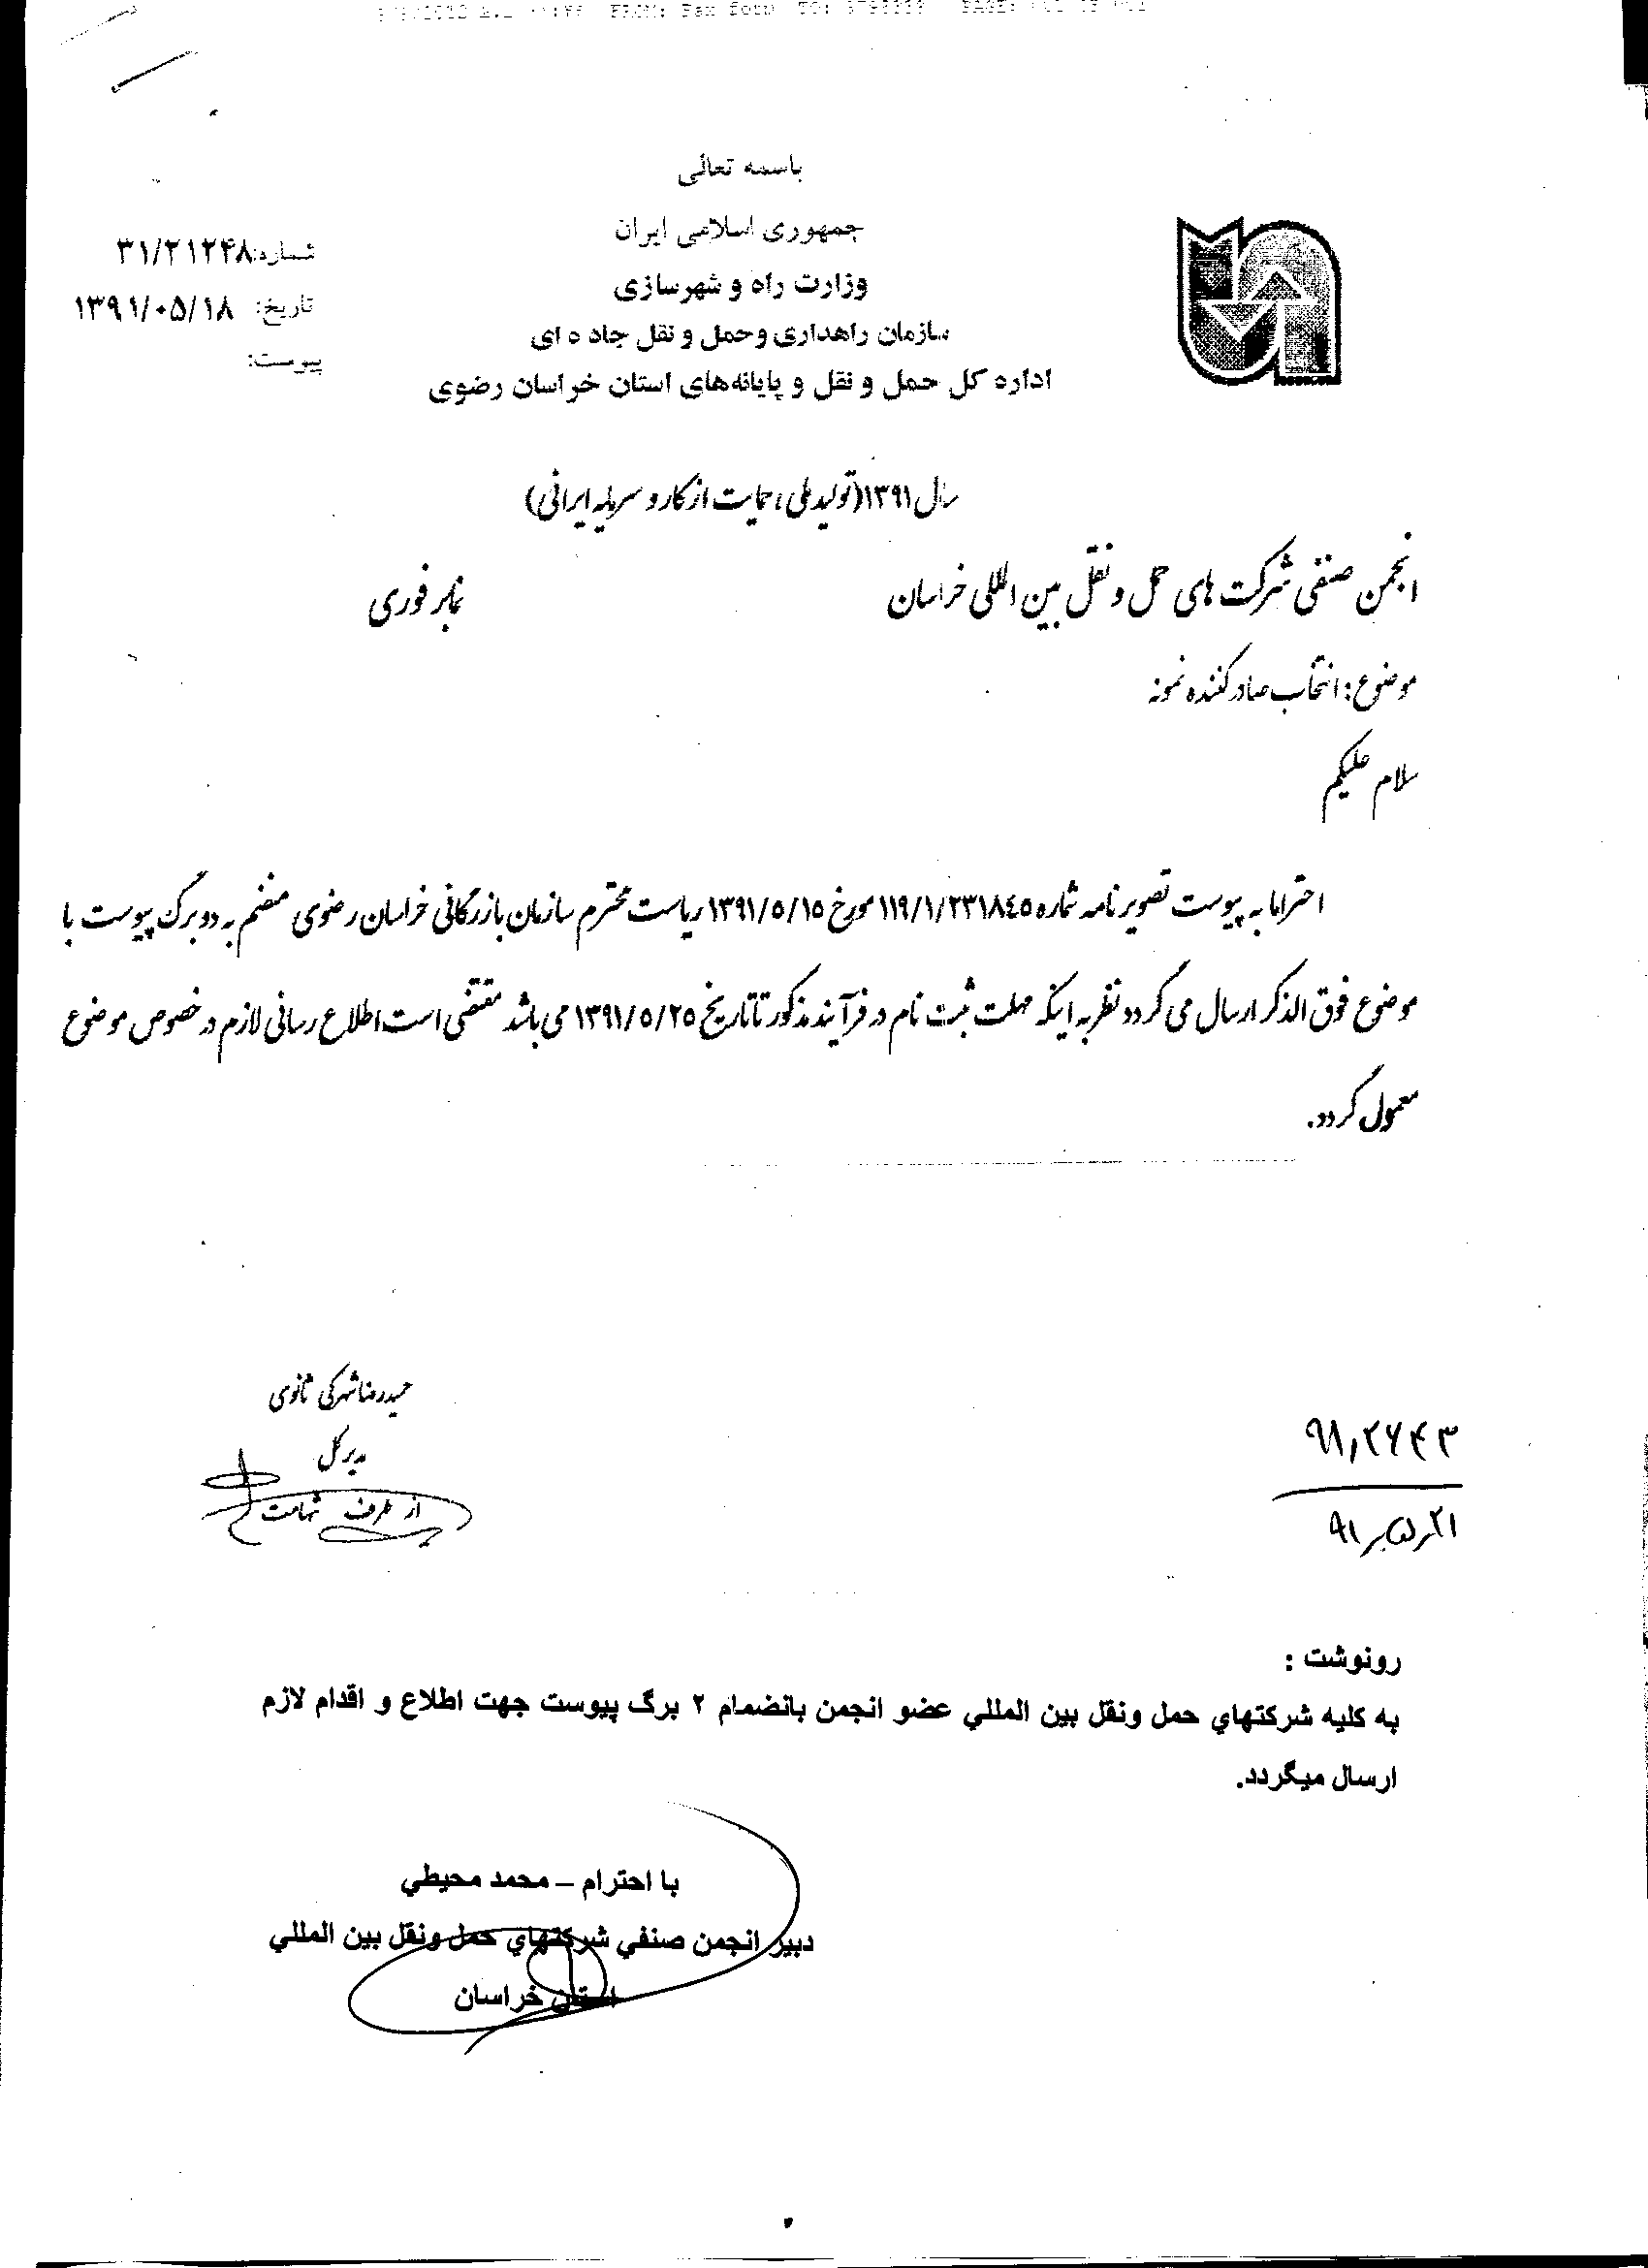 باسمه تعالی
جمهوری اسلامی ایران
وزارت راه و شهرسازی
سازمان راهداری وحمل و نقل جاده ای
اداره کل حمل و نقل و پایانه‌های استان خراسان رضوی
شماره: ۳۱/۲۱۲۴۸
تاریخ: ۱۳۹۱/۰۵/۱۸
پیوست:
سال ۱۳۹۱(تولید ملی ، حمایت از کار و سرمایه ایرانی)
انجمن صنفی شرکت های حمل و نقل بین المللی خراسان
نمابر فوری
موضوع: انتخاب صادر کننده نمونه
سلام علیکم
احتراما به پیوست تصویر نامه شماره ۱۱۹/۱/۲۳۱۸٤٥ مورخ ۱۳۹۱/٥/۱٥ ریاست محترم سازمان بازرگانی خراسان رضوی منضم به دو برگ پیوست با
موضوع فوق الذکر ارسال می گردد نظر به اینکه مهلت ثبت نام در فرآیند مذکور تا تاریخ ۱۳۹۱/٥/۲٥ می باشد مقتضی است اطلاع رسانی لازم در خصوص موضوع
معمول گردد.
حمیدرضا شهرکی ثانوی
مدیر کل
از طرف شهامت
۹۱٫۲۶۴۳
۹۱٫۵٫۲۱
رونوشت :
به کلیه شرکتهاي حمل ونقل بین المللي عضو انجمن بانضمام ۲ برگ پیوست جهت اطلاع و اقدام لازم
ارسال میگردد.
با احترام – محمد محیطي
دبیر انجمن صنفي شرکتهاي حمل ونقل بین المللي
استان خراسان